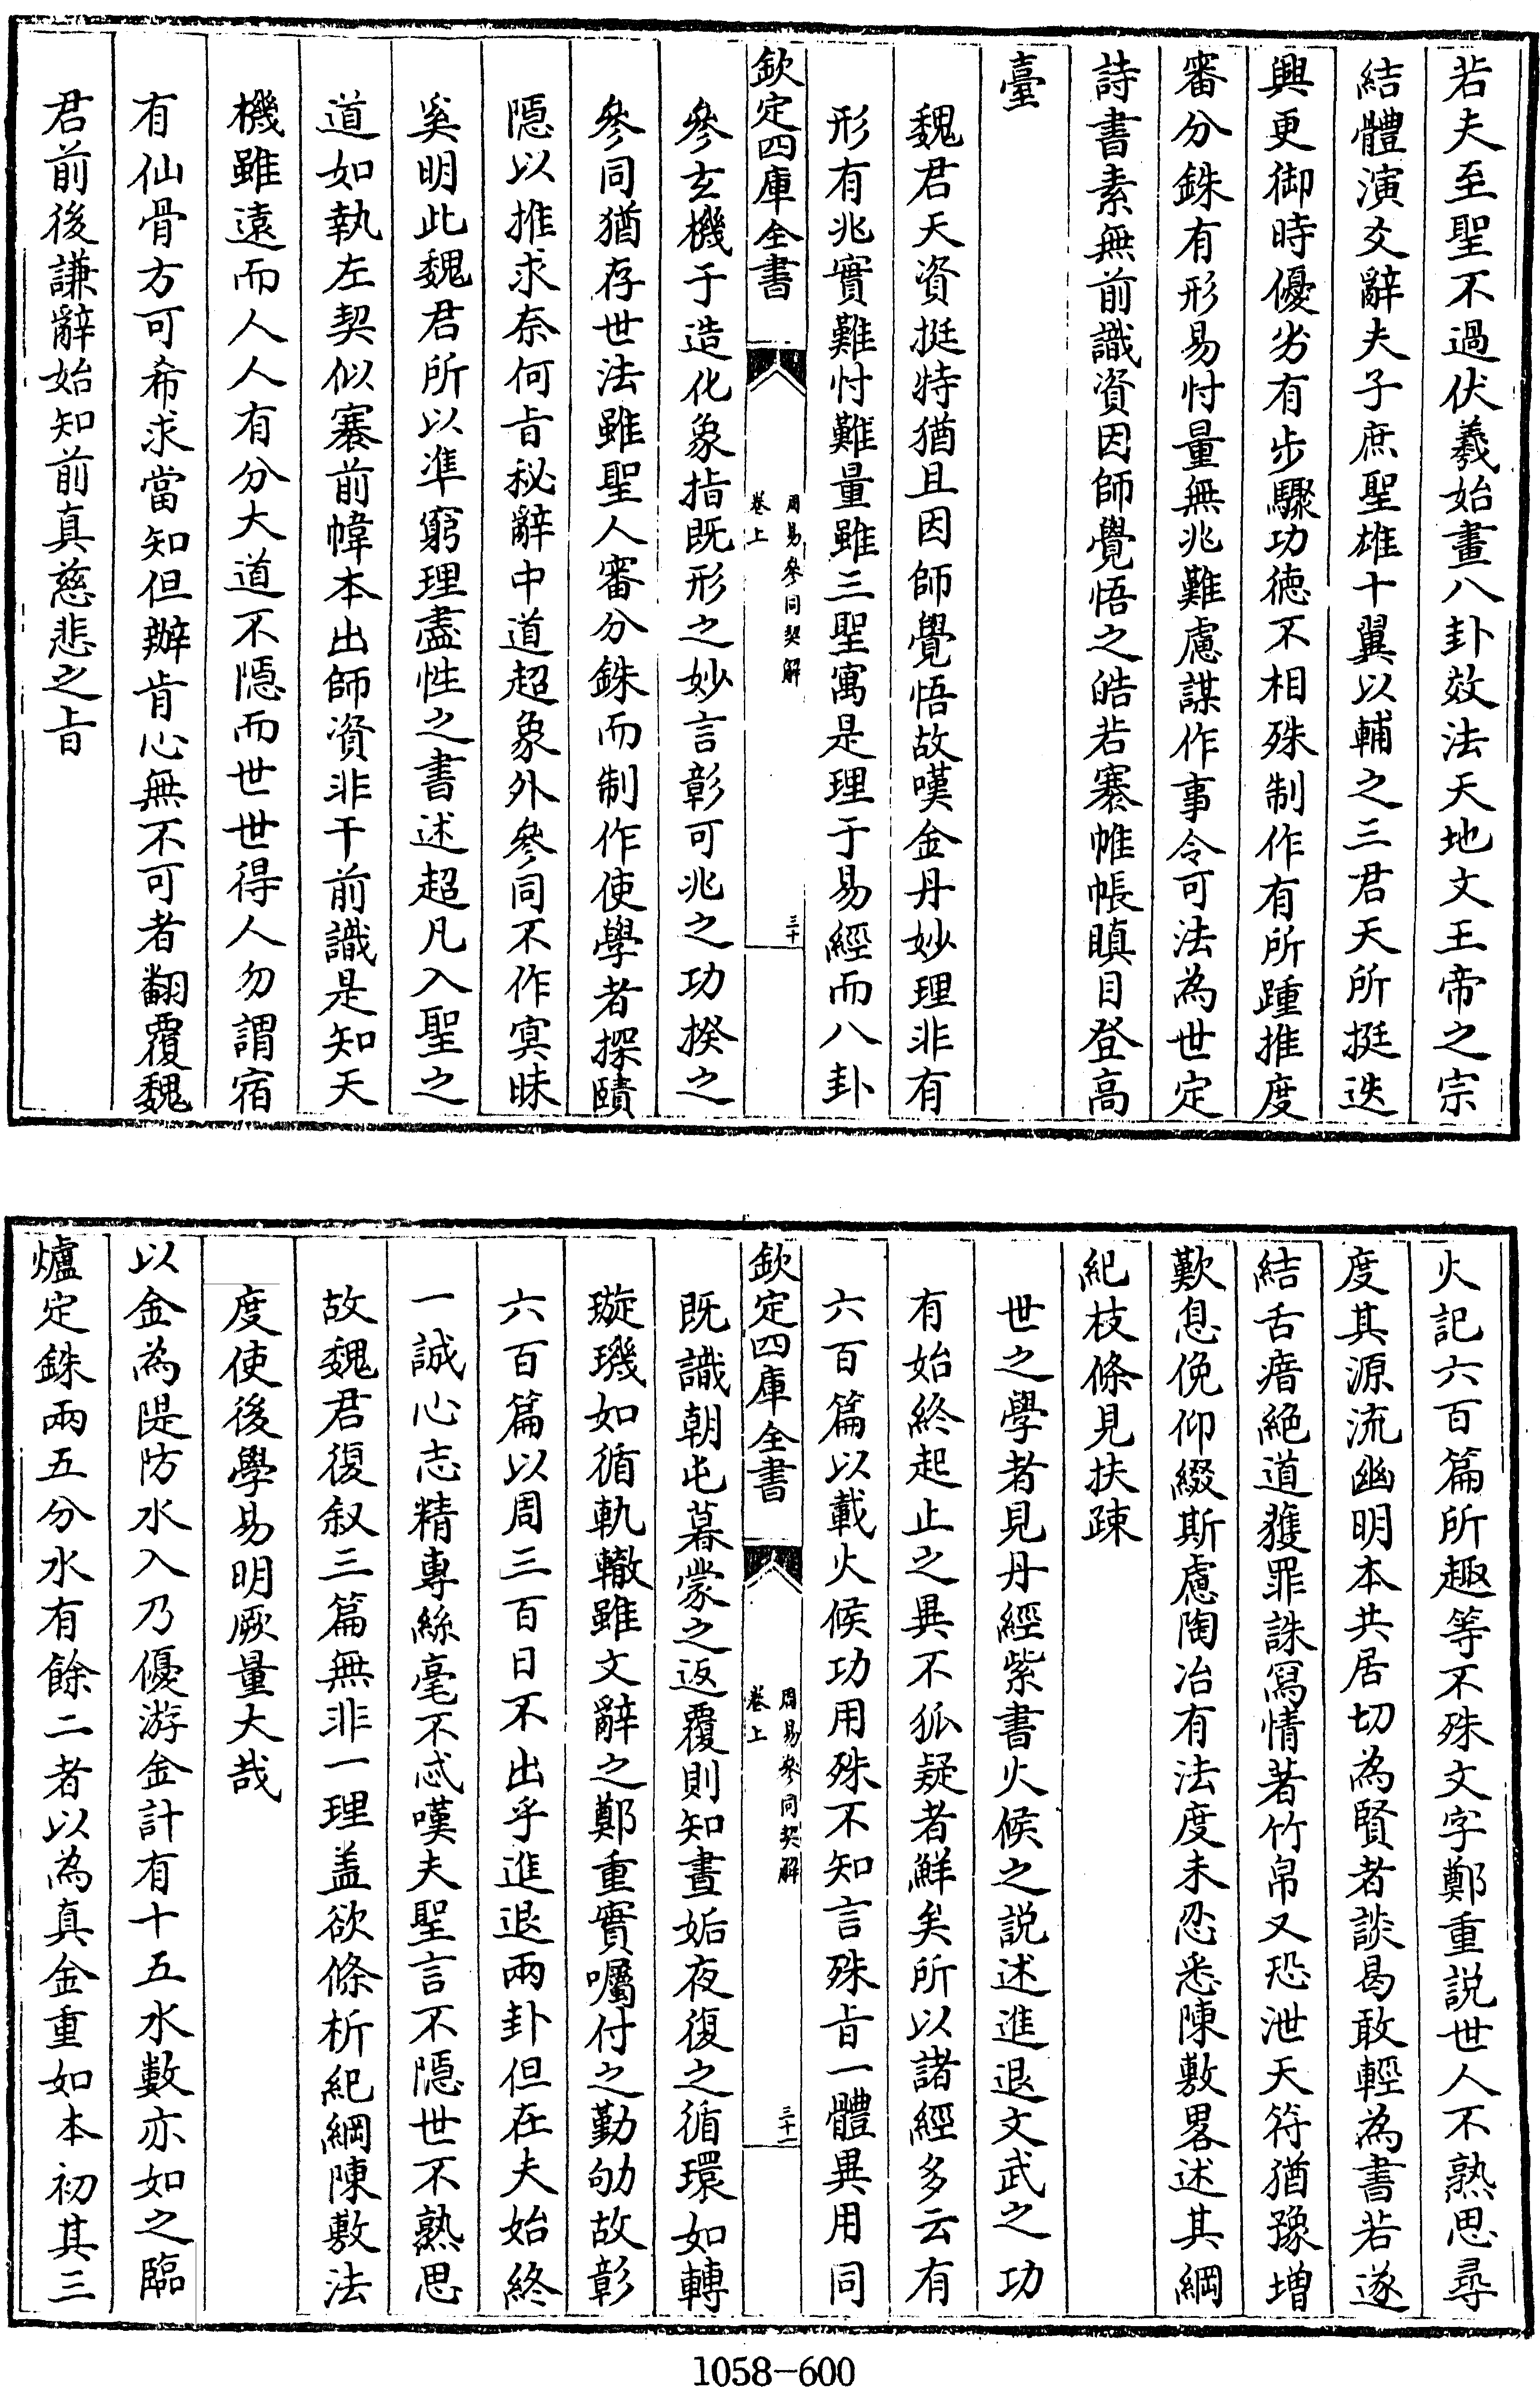 若夫至聖不過伏羲始畫八卦效法天地文王帝之宗
結體演爻辭夫子庶聖雄十翼以輔之三君天所挺迭
興更御時優劣有步驟功德不相殊制作有所踵推度
審分銖有形易忖量無兆難慮謀作事令可法為世定
詩書素無前識資因師覺悟之皓若褰帷帳瞋目登高
臺
魏君天資挺特猶且因師覺悟故嘆金丹妙理非有
形有兆實難忖難量雖三聖寓是理于易經而八卦
欽定四庫全書
周易參同契解
卷上
三十
參玄機于造化象指既形之妙言彰可兆之功揆之
參同猶存世法雖聖人審分銖而制作使學者探賾
隱以推求奈何旨秘辭中道超象外參同不作寘昧
奚明此魏君所以準窮理盡性之書述超凡入聖之
道如執左契似褰前幃本出師資非干前識是知天
機雖遠而人人有分大道不隱而世世得人勿謂宿
有仙骨方可希求當知但辦肯心無不可者翻覆魏
君前後謙辭始知前真慈悲之旨
火記六百篇所趣等不殊文字鄭重說世人不熟思尋
度其源流幽明本共居切為賢者談曷敢輕為書若遂
結舌瘖絕道獲罪誅寫情著竹帛又恐泄天符猶豫增
歎息俛仰綴斯慮陶冶有法度未忍悉陳敷畧述其綱
紀枝條見扶疎
世之學者見丹經紫書火候之説述進退文武之功
有始終起止之異不狐疑者鮮矣所以諸經多云有
六百篇以載火候功用殊不知言殊旨一體異用同
欽定四庫全書
周易參同契解
卷上
三十一
既識朝屯暮蒙之返覆則知晝姤夜復之循環如轉
璇璣如循軌轍雖文辭之鄭重實囑付之勤劬故彰
六百篇以周三百日不出乎進退兩卦但在夫始終
一誠心志精專絲毫不忒嘆夫聖言不隱世不熟思
故魏君復叙三篇無非一理盖欲條析紀綱陳敷法
度使後學易明厥量大哉
以金為隄防水入乃優游金計有十五水數亦如之臨
爐定銖兩五分水有餘二者以為真金重如本初其三
1058-600